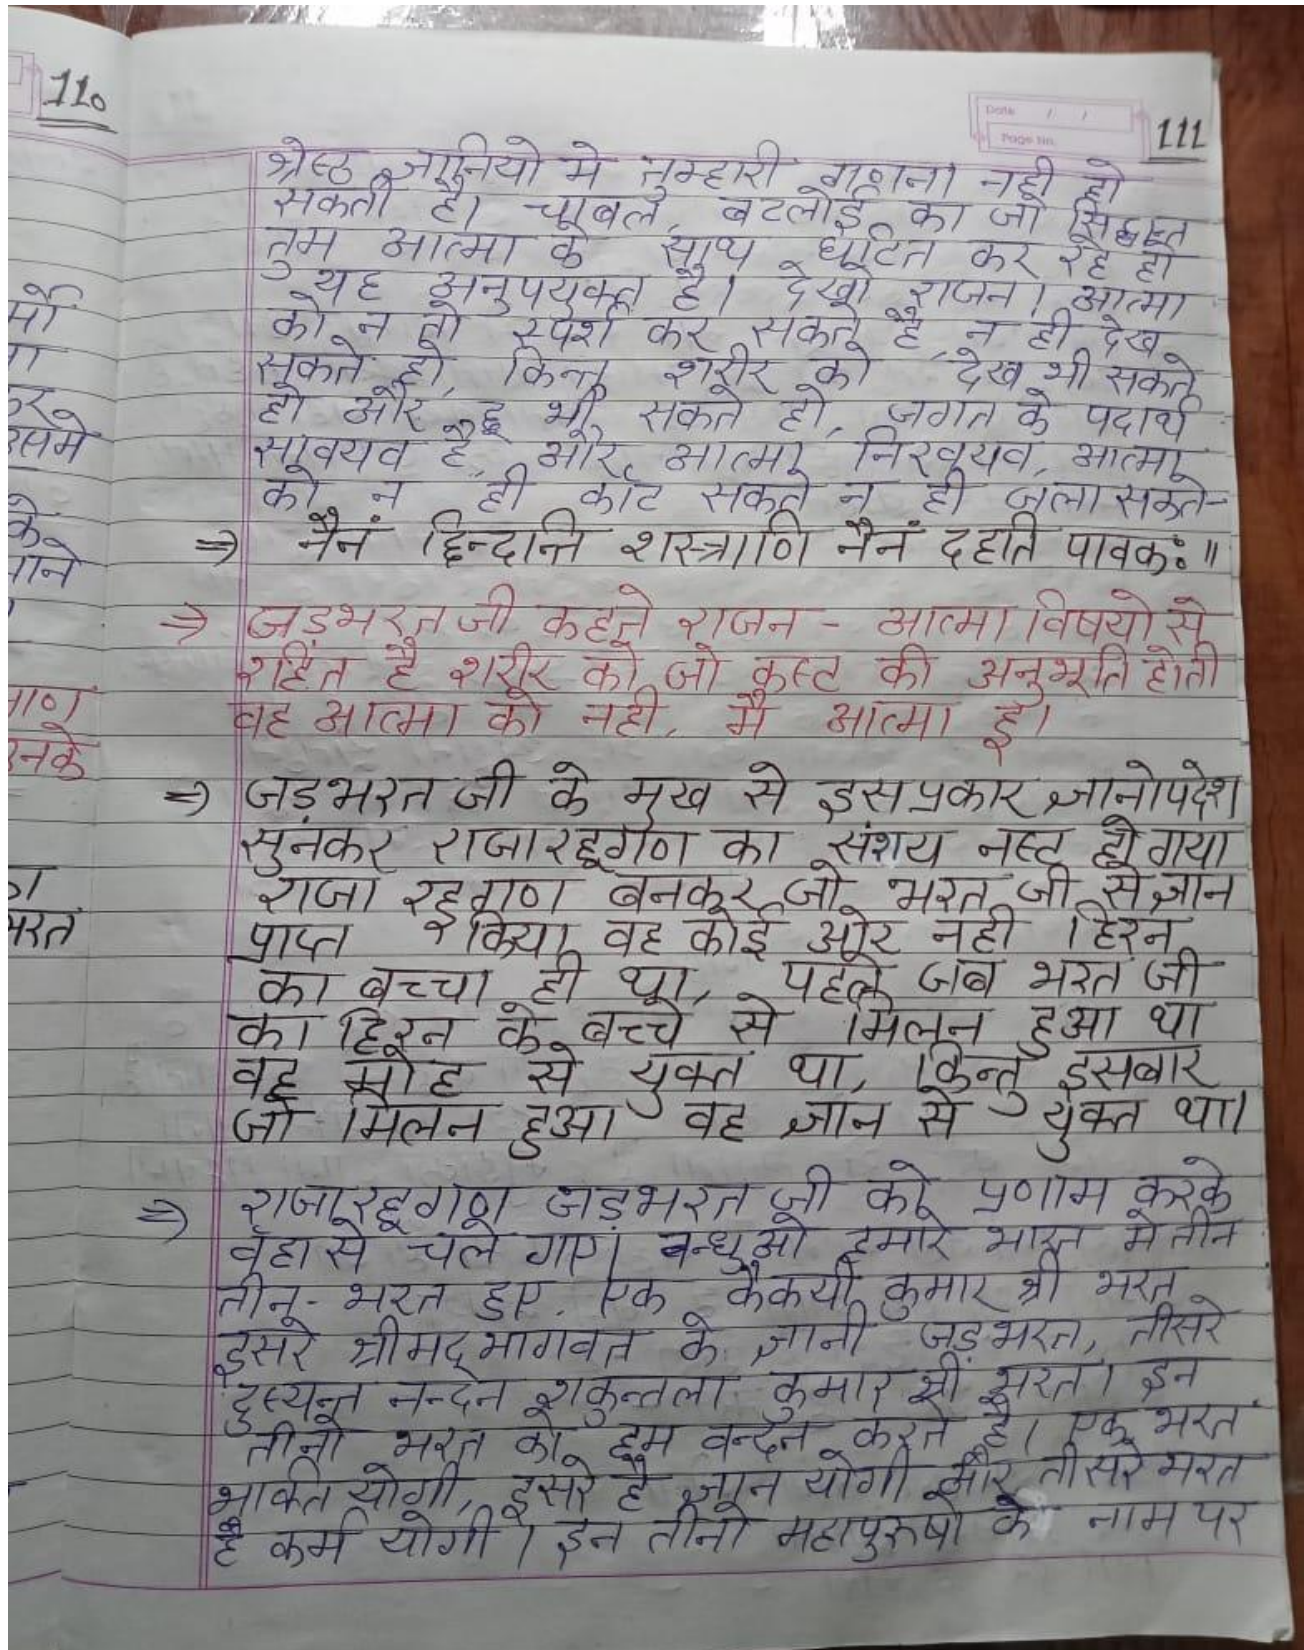 110
मों
ा
कर
उसमे
के
जाने
ाण
उनके
ा
भरत
Date / /
Page No.
111
श्रेस्ठ ज्ञानियो मे तुम्हारी गणना नही हो
सकती है। चावल, बटलोई का जो सिद्धान्त
तुम आत्मा के साथ घटित कर रहे हो
यह अनुपयुक्त है। देखो राजन। आत्मा
को न तो स्पर्श कर सकते है, न ही देख
सकते हो, किन्तु शरीर को देख भी सकते
हो और छू भी सकते हो, जगत के पदार्थ
सावयव है, और आत्मा निरवयव, आत्मा
को न ही काट सकते न ही जला सकते-
⇒ नैनं छिन्दान्ति शस्त्राणि नैनं दहति पावकः॥
⇒ जड़भरत जी कहते राजन - आत्मा विषयो से
रहित है शरीर को जो कस्ट की अनुभूति होती
वह आत्मा को नही, मै आत्मा हू।
⇒ जड़भरत जी के मुख से इसप्रकार ज्ञानोपदेश
सुनकर राजारहूगण का संशय नस्ट हो गया
राजा रहूगण बनकर जो भरत जी से ज्ञान
प्राप्त किया वह कोई ओर नही हिरन
का बच्चा ही था, पहले जब भरत जी
का हिरन के बच्चे से मिलन हुआ था
वह मोह से युक्त था, किन्तु इसबार
जो मिलन हुआ वह ज्ञान से युक्त था।
⇒ राजारहूगण जड़भरत जी को प्रणाम करके
वहा से चले गए। बन्धुओ हमारे भारत मे तीन
तीन- भरत हुए. एक कैकयी कुमार श्री भरत
दूसरे श्रीमद्भागवत के ज्ञानी जड़भरत, तीसरे
दुस्यन्त नन्दन शकुन्तला कुमार श्री भरत। इन
तीनो भरत को हम वन्दन करते है। एक भरत
भक्ति योगी, दूसरे है ज्ञान योगी और तीसरे भरत
है कर्म योगी। इन तीनो महापुरुषो के नाम पर